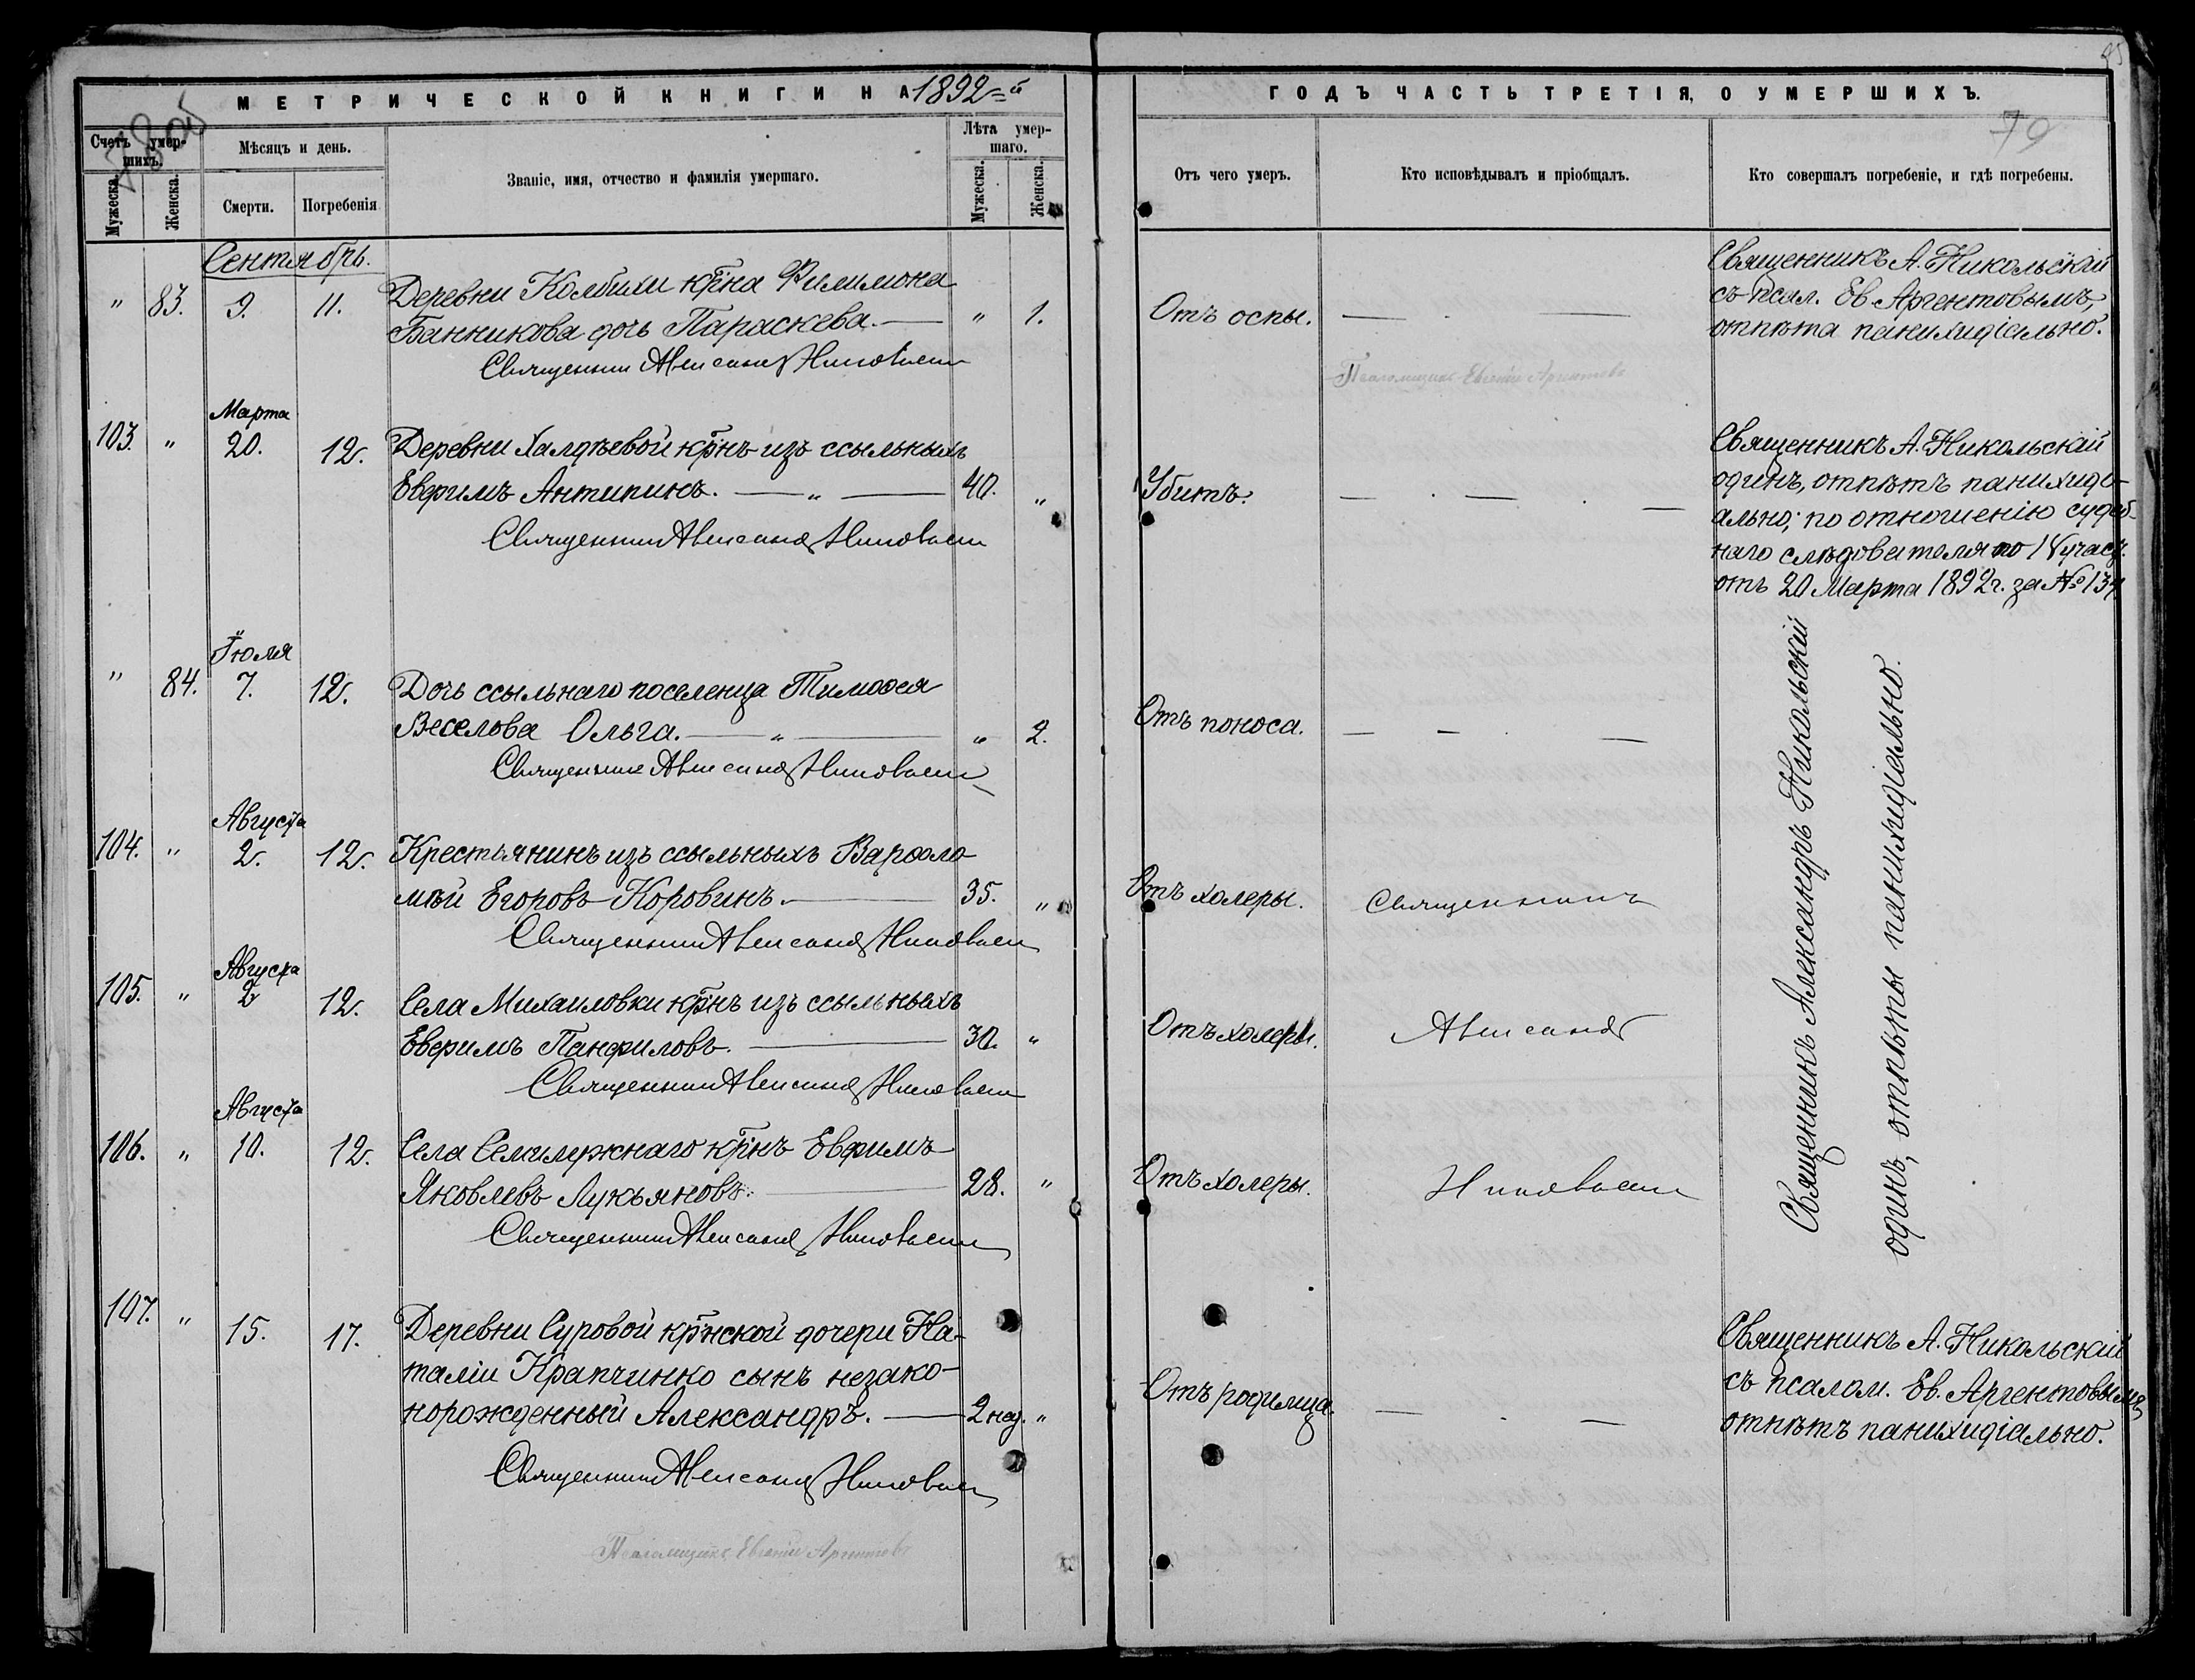 МЕТРИЧЕСКОЙ КНИГИ НА 1892-й
ГОДЪ ЧАСТЬ ТРЕТІЯ, О УМЕРШИХЪ.
79
Счетъ умер-
шихъ.
Мужеска.
Женска.
Мѣсяцъ и день.
Смерти.
Погребенія
Званіе, имя, отчество и фамилія умершаго.
Лѣта умер-
шаго.
Мужеска.
Женска.
Отъ чего умеръ.
Кто исповѣдывалъ и пріобщалъ.
Кто совершалъ погребеніе, и гдѣ погребены.
Сентябрь.
" 83. 9. 11. Деревни Колбихи кр̃на Филимона
Банникова дочь Параскева. — " 1.
Священникъ Александръ Никольскій
Отъ оспы.
Священникъ А. Никольскій
съ псал. Ев. Аргентовымъ,
отпѣта панихидіально.
Псаломщикъ Евгеній Аргентовъ
Марта
103. " 20. 12. Деревни Халдѣевой кр̃нъ изъ ссыльныхъ
Евфимъ Антипинъ. — " — 40. "
Священникъ Александръ Никольскій
Убитъ.
Священникъ А. Никольскій
одинъ, отпѣтъ панихиді-
ально; по отношенію судеб-
наго слѣдователя по IV участ.
отъ 20 Марта 1892 г. за № 134
Іюля
" 84. 7. 12. Дочь ссыльнаго поселенца Тимоѳея
Веселова Ольга. — " — " 2.
Священникъ Александръ Никольскій
Отъ поноса.
Августа
104. " 2. 12. Крестьянинъ изъ ссыльныхъ Варѳоло-
мѣй Егоровъ Коровинъ. — 35. "
Священникъ Александръ Никольскій
Отъ холеры. Священникъ
Августа
105. " 2 12. Села Михаиловки кр̃нъ изъ ссыльныхъ
Евфимъ Панфиловъ. — 30. "
Священникъ Александръ Никольскій
Отъ холеры. Александръ
Августа
106. " 10. 12. Села Семилужнаго кр̃нъ Евфимъ
Яковлевъ Лукьяновъ. — 28. "
Священникъ Александръ Никольскій
Отъ холеры. Никольскій
Священникъ Александръ Никольскій
одинъ, отпѣты панихидіально.
107. " 15. 17. Деревни Суровой кр̃нской дочери На-
таліи Крапчинко сынъ незако-
норожденный Александръ. — 2 нед. "
Священникъ Александръ Никольскій
Отъ родимца.
Священникъ А. Никольскій
съ псалом. Ев. Аргентовымъ
отпѣтъ панихидіально.
Псаломщикъ Евгеній Аргентовъ